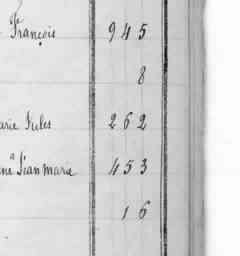 François 945
8
arie Jules 262
Jean Marie 453
16